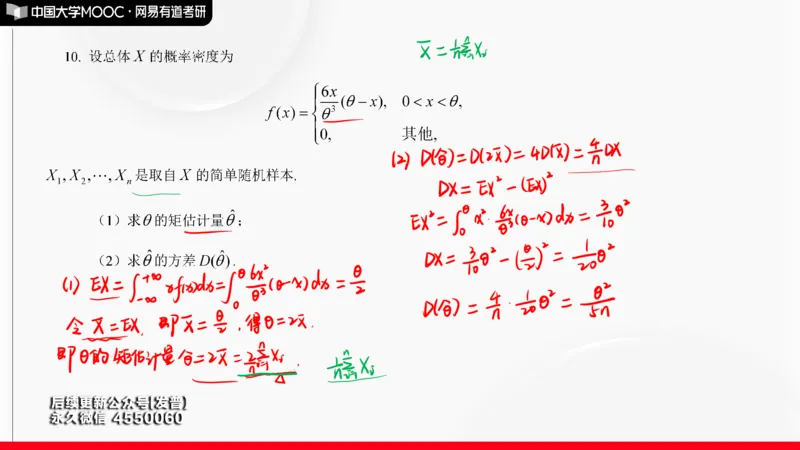 中国大学MOOC·网易有道考研
X̄ = 1/n ∑_{i=1}^{n} X_i
10. 设总体 X 的概率密度为
f(x) = { 6x/θ³ (θ−x), 0<x<θ,
0, 其他,
X₁, X₂, ⋯, Xₙ 是取自 X 的简单随机样本.
（1）求θ的矩估计量θ̂；
（2）求θ̂的方差D(θ̂).
(1) EX = ∫_{-∞}^{+∞} xf(x)dx = ∫_0^θ 6x²/θ³ (θ-x)dx = θ/2
令 X̄ = EX, 即 X̄ = θ/2, 得θ = 2X̄.
即θ的矩估计量 θ̂ = 2X̄ = 2/n ∑_{i=1}^{n} X_i.
1/n ∑_{i=1}^{n} X_i
(2) D(θ̂) = D(2X̄) = 4D(X̄) = 4/n DX
DX = EX² - (EX)²
EX² = ∫_0^θ x²·6x/θ³ (θ-x)dx = 3/10 θ²
DX = 3/10 θ² - (θ/2)² = 1/20 θ²
D(θ̂) = 4/n · 1/20 θ² = θ²/5n
后续更新公众号[发普]
永久微信 4550060